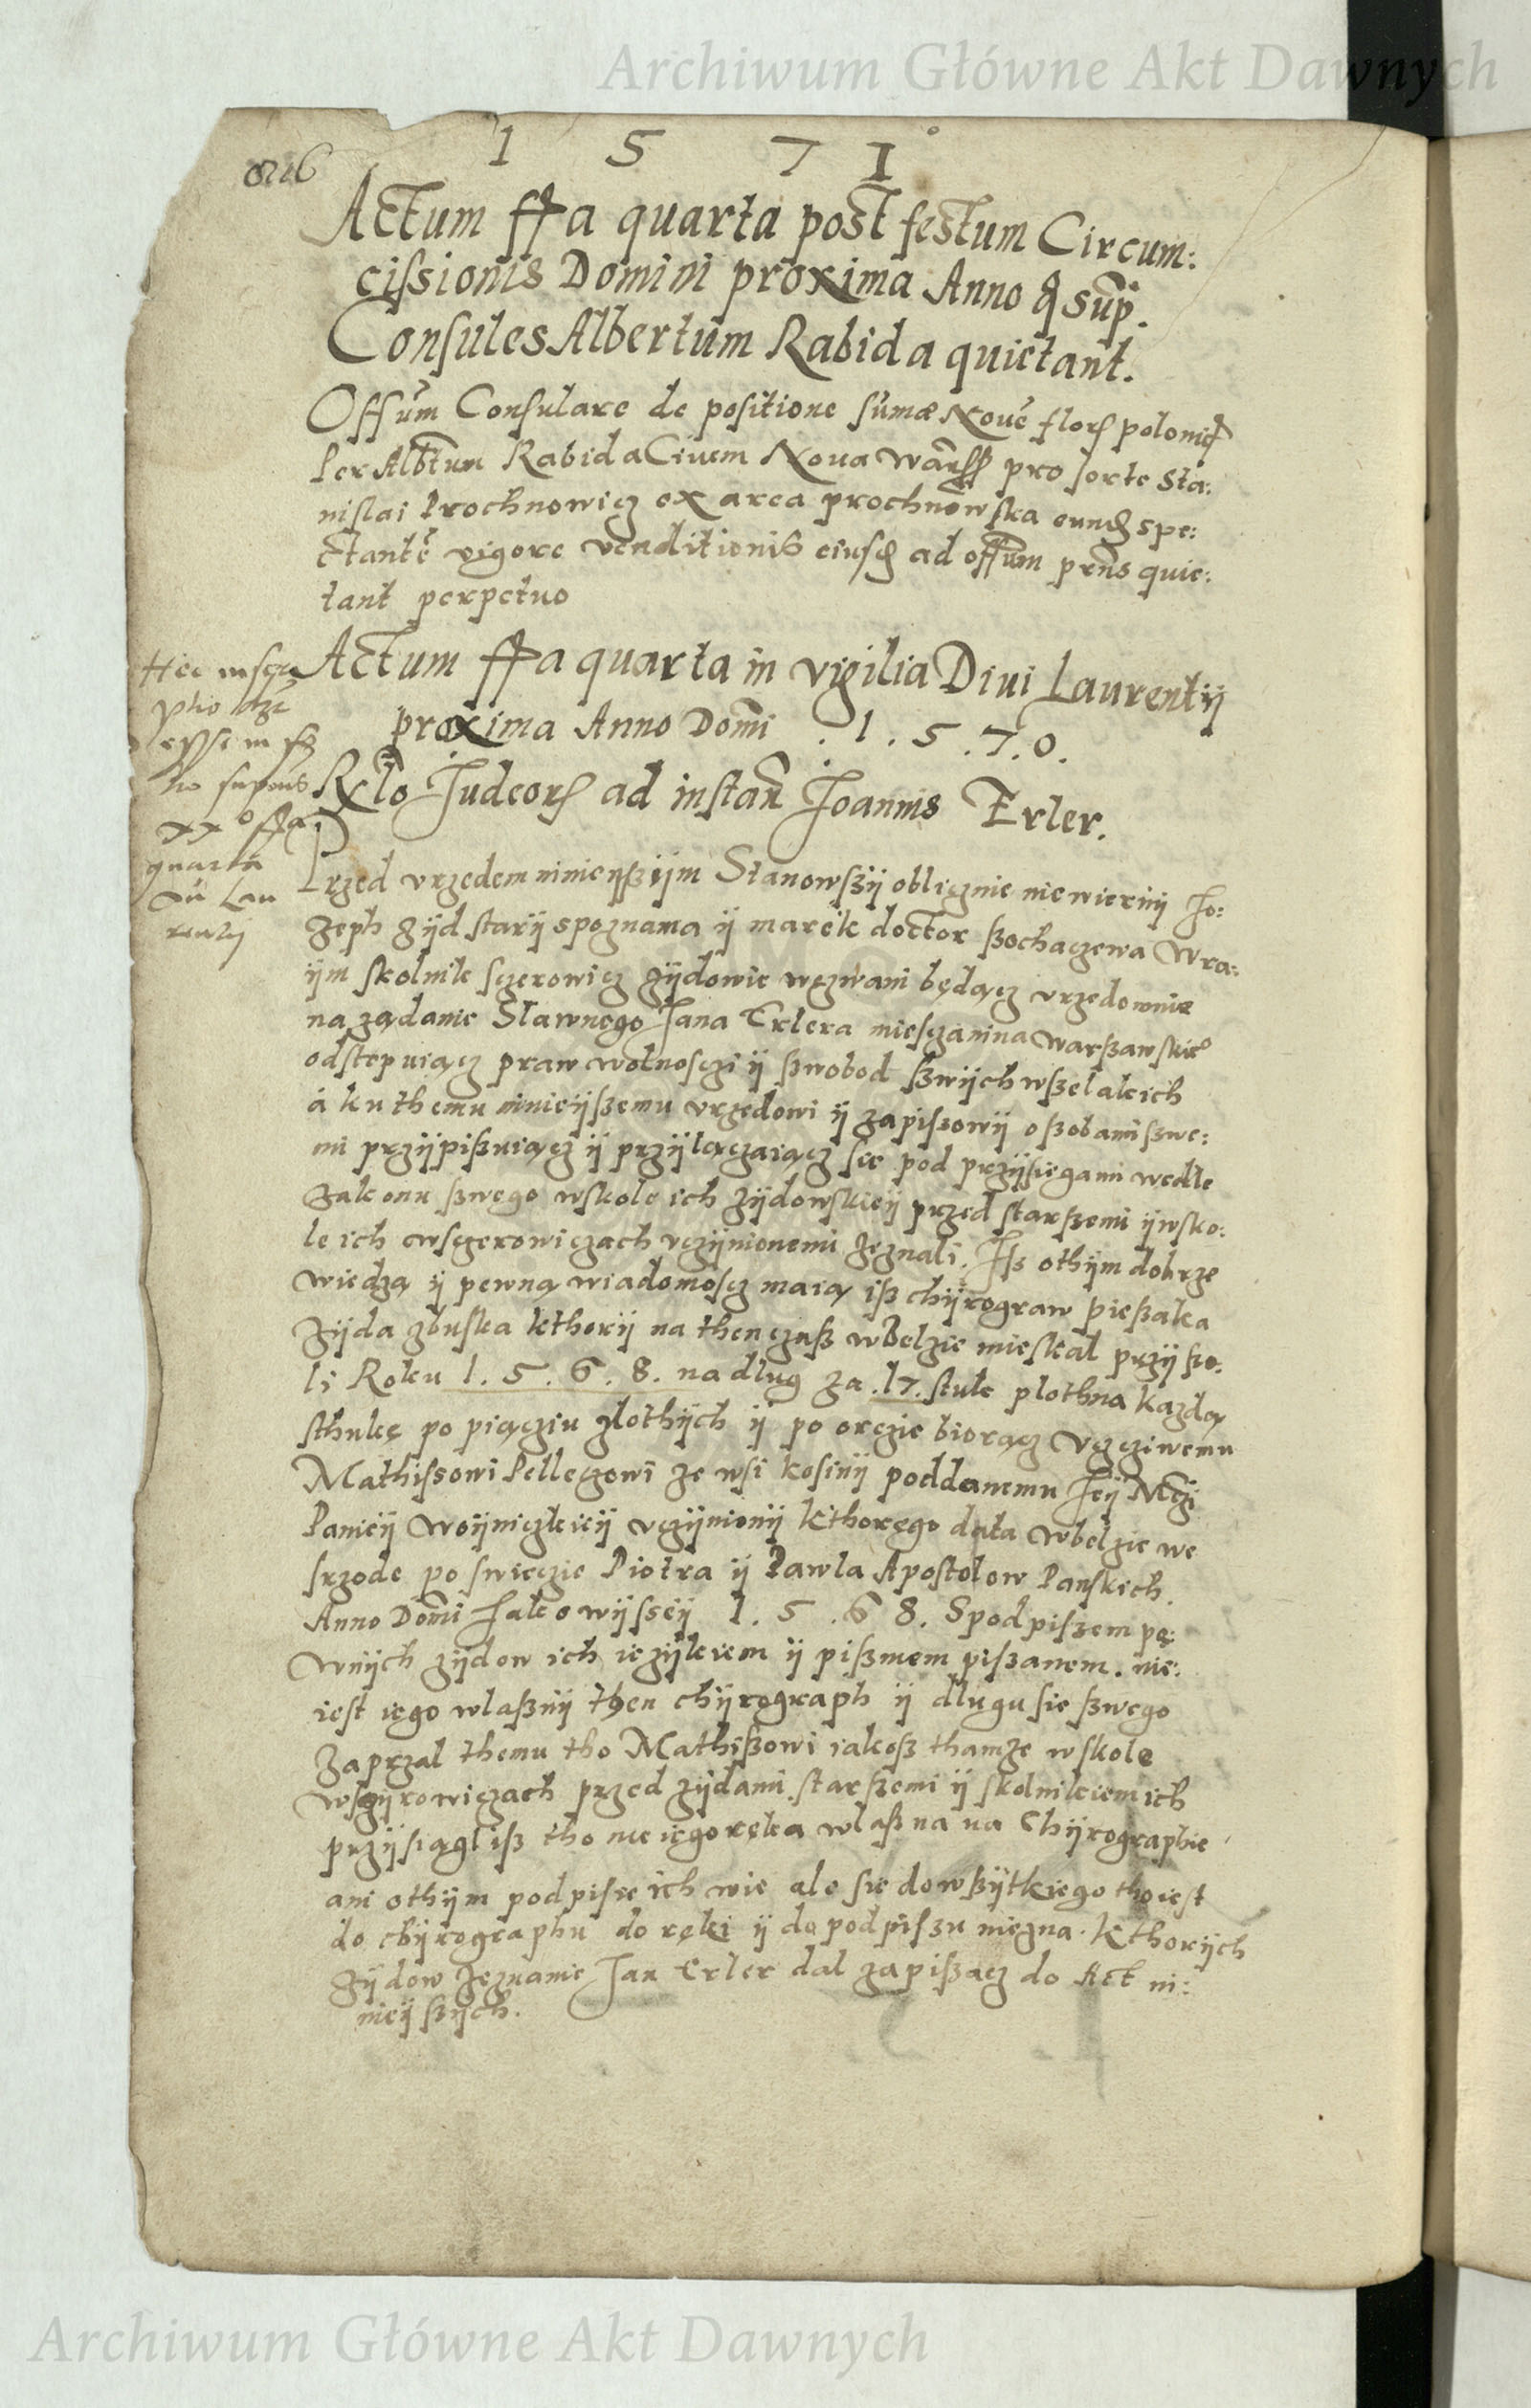 Archiwum Główne Akt Dawnych
1 5 7 1
Actum ffa quarta post festum Circum:
cissionis Domini proxima Anno q sup.
Consules Albertum Rabida quietant.
Offum Consulare de positione sumæ Noue flor polonic
Per Albtum Rabida Ciuem Noua Warss pro sorte Sta:
nislai Prochnowicz ex area prochnowska eund spe:
ctante vigore venditionis eiusd ad offum prns quie:
tant perpetuo
Actum ffa quarta in vigilia Diui Laurentij
proxima Anno Domi . 1 . 5 . 7 . 0 .
Rlo Judeor ad instan Joannis Erler.
Hec inscri
ptio
quarta
Lau
rentij
Przed vrzedem ninieyszijm Stanowszij oblicznie niewiernij Jo:
zeph zijd starij spoznama ij marek doctor ssochaczewa Wra:
ijm skolnik sczerowicz zijdowie wezwani będącz vrzedownie
na ządanie Slawnego Jana Erlera miesczanina warszawskieo
odstepuiącz praw wolnosczi ij swobod swijch wszelakich
á ku themu ninieijszemu vrzedowi ij zapissowij osobami swe:
mi przijpisuiącz ij przijlączaiącz sie pod przijsiegami wedle
zakonu swego wskole ich zijdowskieij przed starszemi ijwsko:
le ich wsczerowiczach vczijnionemi zeznali. Jsz othijm dobrze
wiedzą ij pewną wiadomoscz maią isz chijrograw piessaka
zijda zbuska kthorij na thenczass wBelzie mieskal przijszo:
lj Roku 1 . 5 . 6 . 8 . na dlug za .17. stuk plothna kazdą
sthukę po pięcziu zlothijch ij po orczie biorącz vczciwemu
Mathissowi Pellegowi ze wsi kosinij poddanemu Jeij Mczi
Panieij Woijniczkieij vczijnionij kthorego data wbelzie we
srzode po swieczie Piotra ij Pawla Apostolow Panskich.
Anno Domi Jako wijsseij 1 . 5 . 6 8. Spodpiszem pe:
wnijch zijdow ich iezijkiem ij pismem pisanem. nie:
iest iego wlasnij then chijrograph ij dlugu sie swego
zaprzal themu tho Mathissowi iakosz thamze wskole
wsczijrowiczach przed zijdami starszemi ij skolnikiem ich
przijsiągl isz tho nie iego ręka wlasna na Chijrographie
ani othijm podpisie ich wie ale sie do wszijtkiego tho iest
do chijrographu do ręki ij do podpiszu niezna. kthorijch
zijdow zeznanie Jan Erler dal zapisacz do Act ni:
nieij szijch.
Archiwum Główne Akt Dawnych